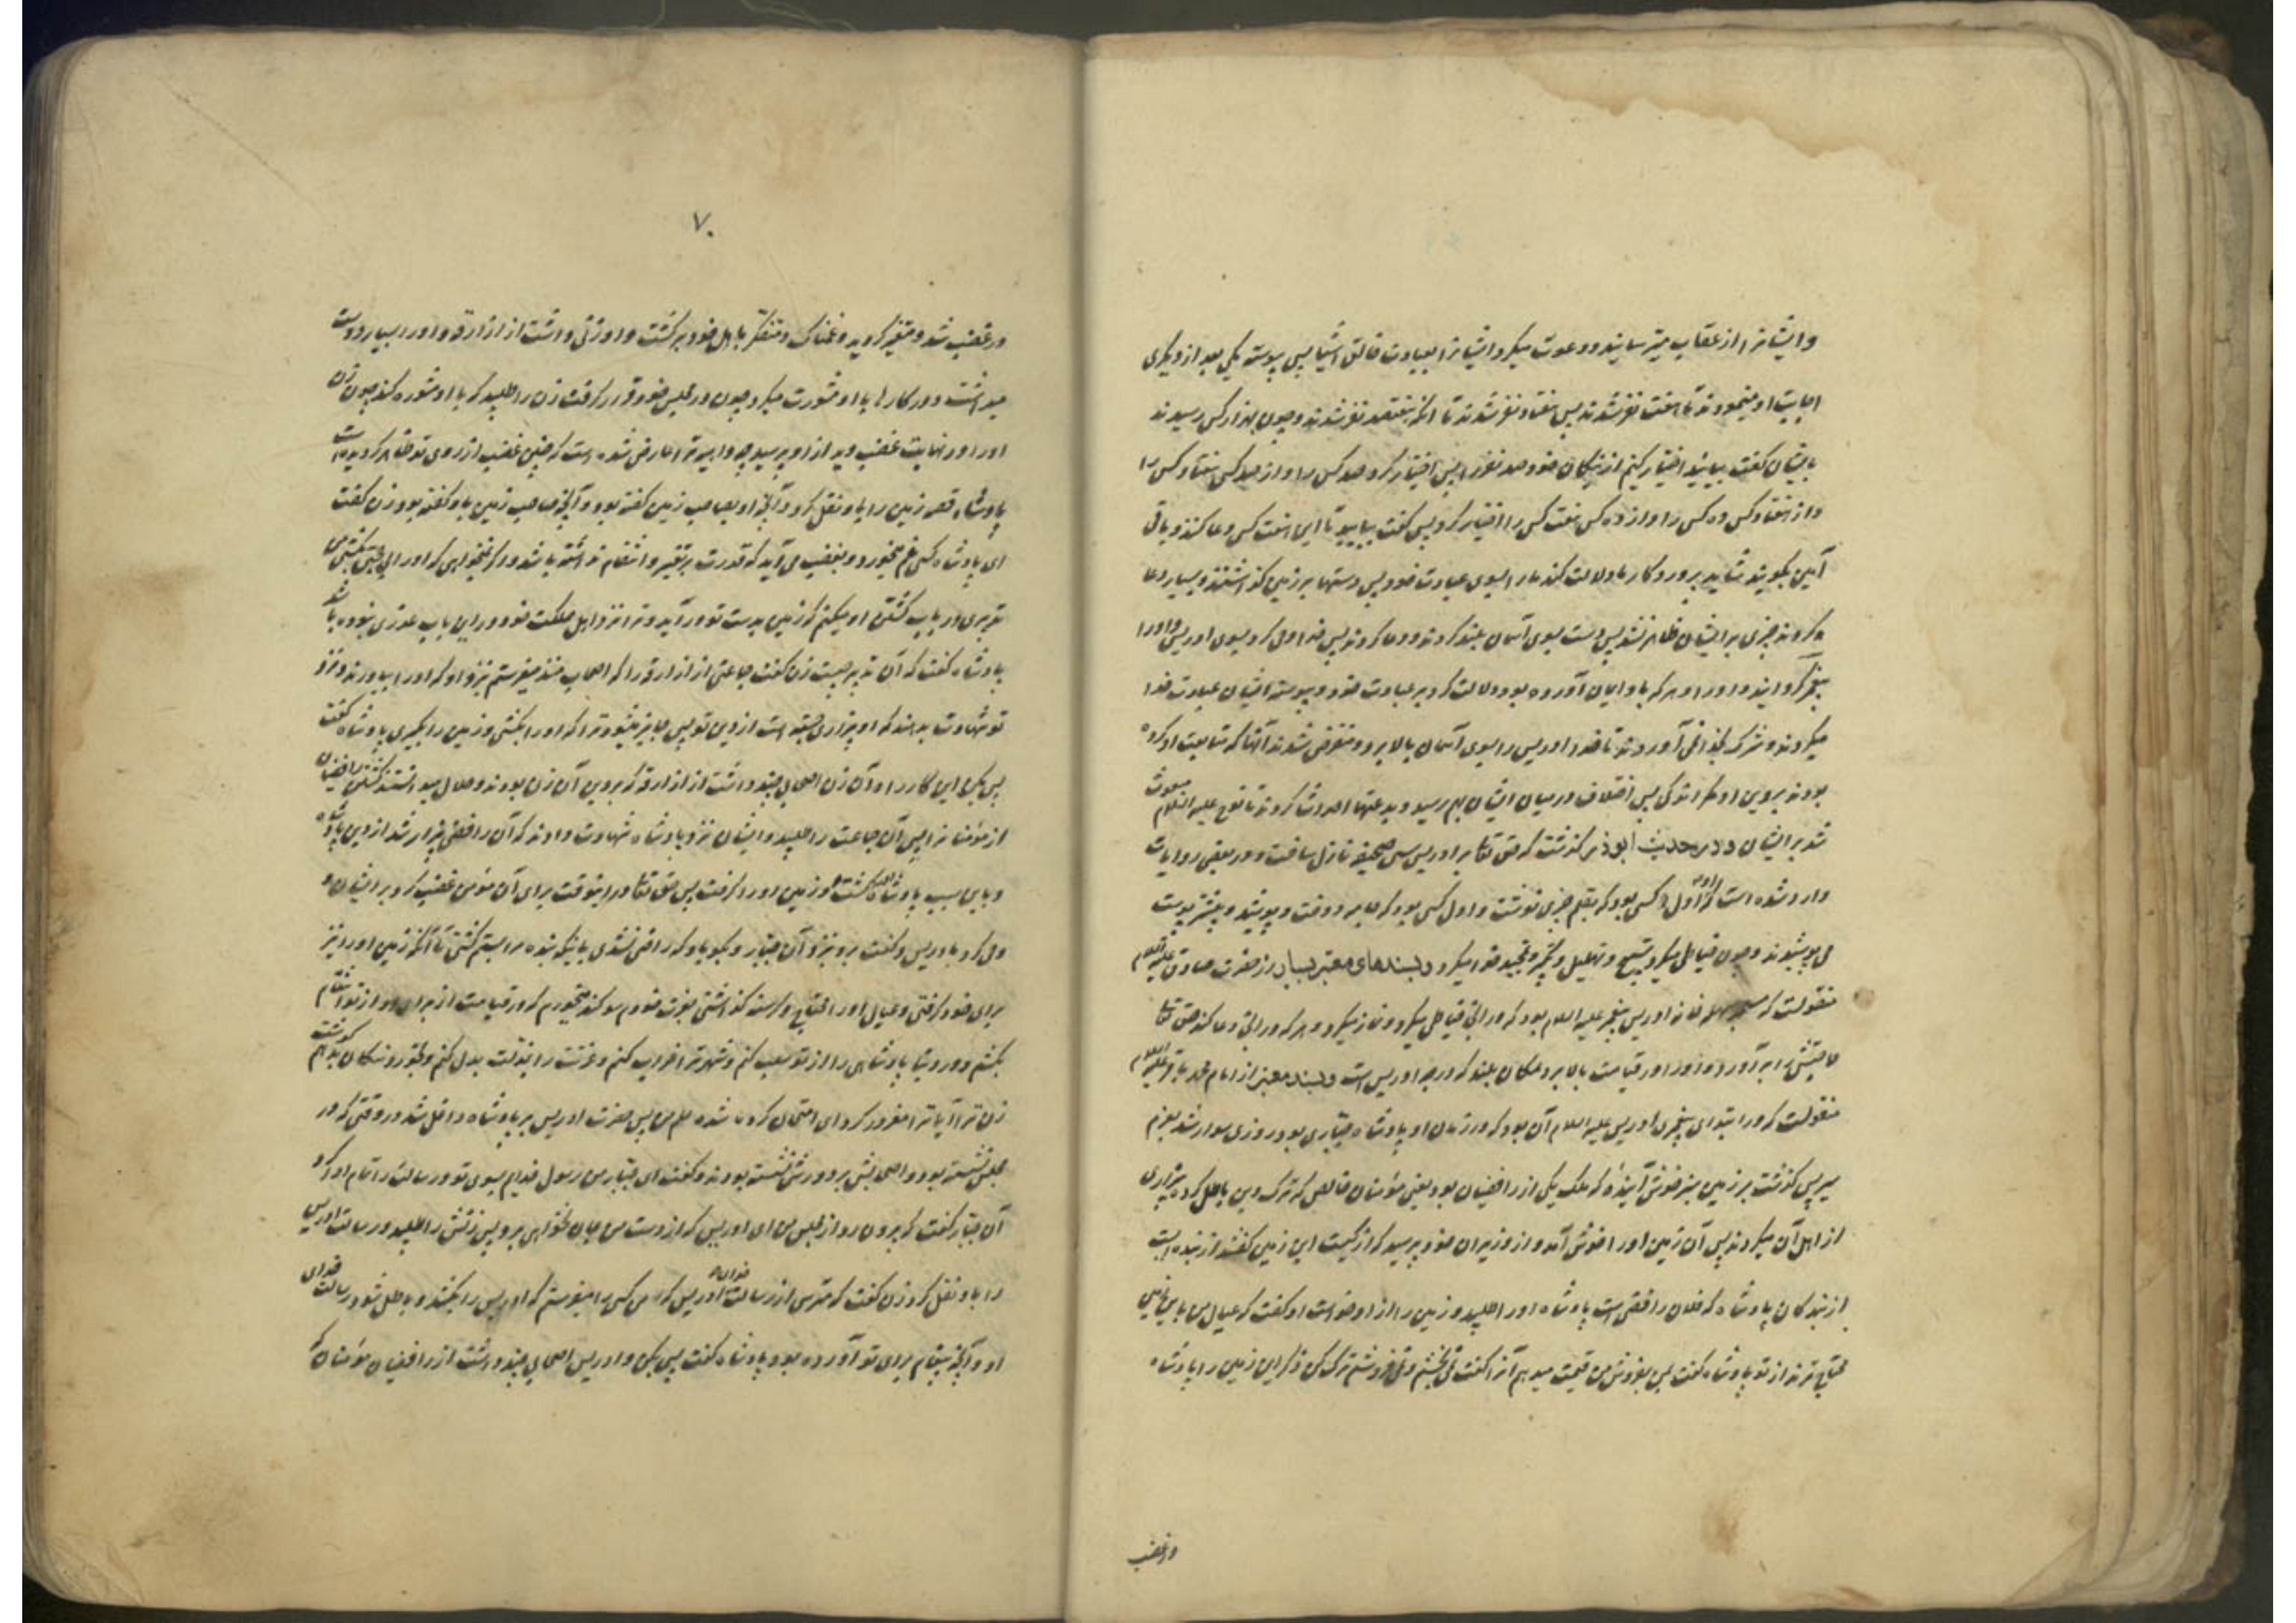 وایشانرا از عقاب میترسانید و دعوت میکرد ایشانرا بعبادت خالق اشیا پس پیوسته یکی بعد از دیگری
اجابت او مینمودند تا هفت نفر شدند پس هفتاد نفر شدند تا آنکه هفتصد نفر شدند و چون بهزار کس رسیدند
بایشان گفت بیایید اختیار کنیم از نیکان خود صد نفر را پس اختیار کرد صد کس را و از صد کس هفتاد کس را
و از هفتاد کس ده کس را و از ده کس هفت کس را اختیار کرد پس گفت بیایید تا این هفت کس دعا کنند و باقی
آمین بگویند شاید پروردگار ما دلالت کند ما را بسوی عبادت خود پس دستها بر زمین گذاشتند و بسیار دعا
کردند چیزی بر ایشان ظاهر نشد پس دست بسوی آسمان بلند کردند و دعا کردند پس خدا وحی کرد بسوی ادریس و او را
پیغمبر گردانید و او را و هر که باو ایمان آورده بود دلالت کرد بر عبادت خود و پیوسته ایشان عبادت خدا
میکردند و شرک بخدا نمی آوردند تا خدا ادریس را بسوی آسمان بالا برد و منقرض شدند آنها که متابعت او کرده
بودند بر دین او مگر اندکی پس اختلاف در میان ایشان بهم رسید و بدعتها احداث کردند تا نوح علیه السلام مبعوث
شد بر ایشان و در حدیث ابوذر گذشت که حق تعا بر ادریس سی صحیفه نازل ساخت و در بعضی روایات
وارد شده است که اول کسی بود که بقلم چیزی نوشت و اول کسی بود که جامه دوخت و پوشید و پیشتر پوست
می پوشیدند و چون خیاطی میکرد تسبیح و تهلیل و تکبیر و تمجید خدا میکرد و بسندهای معتبر بسیار از حضرت صادق علیه السلام
منقولست که مسجد سهله خانه ادریس پیغمبر علیه السلام بود که در انجا خیاطی میکرد و نماز میکرد و هر که در انجا دعا کند حق تعا
حاجتش را برآورد و او را در قیامت بالا برد بمکان بلند که درجه ادریس است و بسند معتبر از امام محمد باقر علیه السلام
منقولست که در ابتدای پیغمبری ادریس علیه السلام آن بود که در زمان او پادشاه جباری بود روزی سوار شد بعزم
سیر پس گذشت بر زمین سبز خوش آینده که ملک یکی از رافضیان بود یعنی مؤمنان خالص که ترک دین باطل کرده بیزاری
از اهل آن میکردند پس آن زمین او را خوش آمد و از وزیران خود پرسید که از کیست این زمین گفتند از بنده ایست
از بندگان پادشاه که فلان رافضی است پادشاه او را طلبید و زمین را از او خواست او گفت که عیال من باین زمین
محتاج ترند از تو پادشاه گفت پس بفروش من قیمت میدهم آنرا گفت نمی بخشم و نمی فروشم ترک کن ذکر این زمین را پادشاه
در غضب
۷۰
در غضب شد و متغیر گردید و غمناک و متفکر باهل خود برگشت و او زنی داشت از ازارقه و او را بسیار دوست
میداشت و در کارها با او مشورت میکرد چون در مجلس خود قرار گرفت زن را طلبید که با او مشوره کند چون زن
او را در نهایت غضب دید از او پرسید چه داهیه ترا عارض شده است که چنین غضب از روی تو ظاهر گردیده است
پادشاه قصه زمین را باو نقل کرد و آنچه او بصاحب زمین گفته بود و آنچه صاحب زمین باو گفته بود زن گفت
ای پادشاه کسی غم میخورد و بغضب می آید که قدرت بر تغییر و انتقام نداشته باشد و اگر نمیخواهی که او را بی حجتی بکشی من
تدبیری در باب کشتن او میکنم که زمین بدست تو درآید و ترا نزد اهل مملکت خود در این باب عذری بوده باشد
پادشاه گفت که آن تدبیر چیست زن گفت جماعتی از ازارقه را که اصحاب منند میفرستم نزد او که او را بیاورند و نزد
تو شهادت بدهند که او بیزاری جسته است از دین تو پس جایز میشود ترا که او را بکشی و زمین را بگیری پادشاه گفت
پس بکن این کار را و آن زن اصحابی چند داشت از ازارقه که بر دین آن زن بودند و حلال میدانستند کشتن رافضیان
از مؤمنانرا پس آن جماعت را طلبید و ایشان نزد پادشاه شهادت دادند که آن رافضی بیزار شد از دین پادشاه
و باین سبب پادشاه او را کشت و زمین او را گرفت پس حق تعا در اینوقت برای آن مؤمن غضب کرد بر ایشان و
وحی کرد بادریس و گفت برو بنزد آن جبار و بگو باو که راضی نشدی باینکه بنده مرا بستم کشتی تا آنکه زمین او را نیز
برای خود گرفتی و عیال او را محتاج و گرسنه گذاشتی بعزت خودم سوگند میخورم که در قیامت از برای او از تو انتقام
بکشم و در دنیا پادشاهی را از تو سلب کنم و شهر ترا خراب کنم و عزتت را بذلت بدل کنم و بخورد سگان بدهم گوشت
زن ترا آیا ترا مغرور کرد ای امتحان کرده شده حلم من پس حضرت ادریس بر پادشاه داخل شد در وقتی که در
مجلس نشسته بود و اصحابش بر دورش نشسته بودند و گفت ای جبار من رسول خدایم بسوی تو و رسالت را تمام ادا کرد
آن جبار گفت که بیرون رو از مجلس من ای ادریس که از دست من جان نخواهی برد پس زنش را طلبید و رسالت ادریس
را باو نقل کرد زن گفت که مترس از رسالت خدای ادریس که من کسی را میفرستم که ادریس را بکشد و باطل شود رسالت خدای
او و آنچه پیغام برای تو آورده بود پادشاه گفت پس بکن و ادریس اصحابی چند داشت از رافضیان مؤمنان که